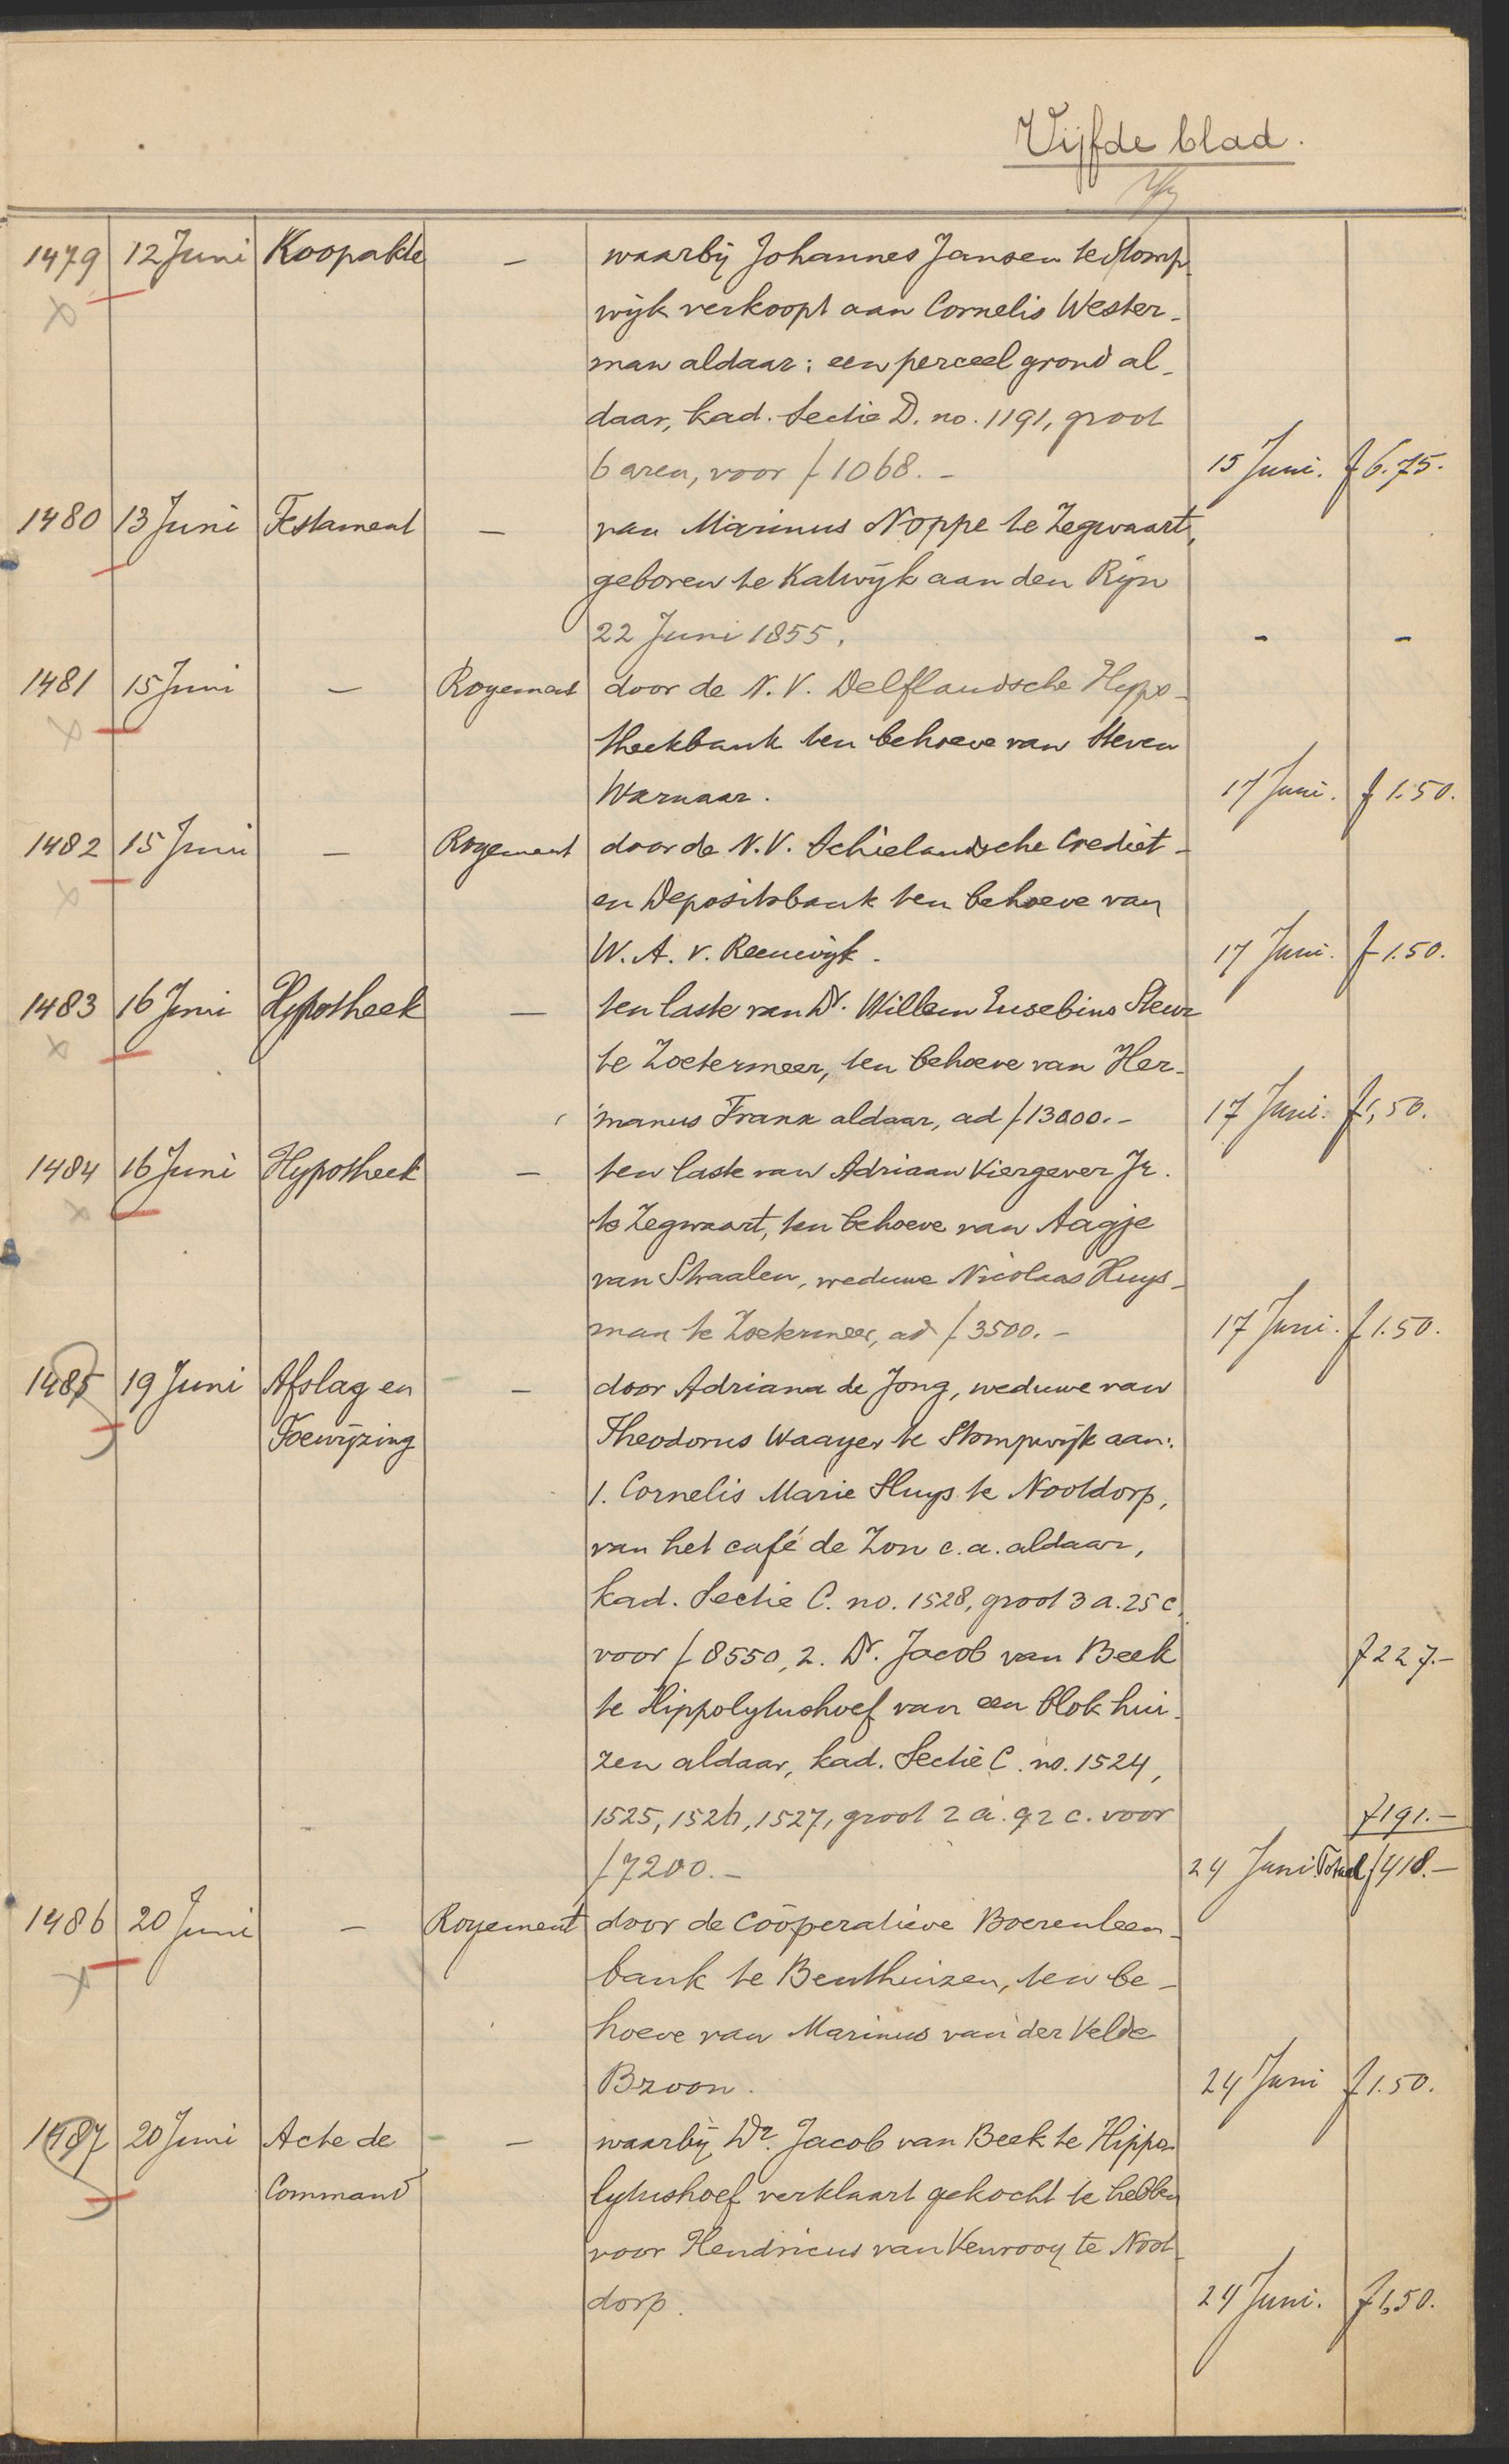 Vijfde blad.
1479 12 Juni Koopakte — waarbij Johannes Jansen te Stomp-
wijk verkoopt aan Cornelis Wester-
man aldaar; een perceel grond al-
daar, kad. Sectie D. no. 1191, groot
6 aren, voor f 1068.- 15 Juni. f 6.75.
1480 13 Juni Testament — van Marinus Noppe te Zegwaart,
geboren te Katwijk aan den Rijn
22 Juni 1855. - -
1481 15 Juni — Royement door de N.V. Delflandsche Hypo-
theekbank ten behoeve van Steven
Warnaar. 17 Juni. f 1.50.
1482 15 Juni — Royement door de N.V. Schielandsche Crediet-
en Depositobank ten behoeve van
W. A. v. Reeuwijk. 17 Juni. f 1.50.
1483 16 Juni Hypotheek — ten laste van Dr. Willem Eusebius Steur
te Zoetermeer, ten behoeve van Her-
manus Franx aldaar, ad f 13000.- 17 Juni. f 1,50.
1484 16 Juni Hypotheek — ten laste van Adriaan Viergever Jr.
te Zegwaart, ten behoeve van Aagje
van Straalen, weduwe Nicolaas Huys-
man te Zoetermeer, ad f 3500.- 17 Juni. f 1.50.
1485 19 Juni Afslag en — door Adriana de Jong, weduwe van
Toewijzing Theodorus Waayer te Stompwijk aan:
1. Cornelis Marie Sluys te Nootdorp,
van het café de Zon c.a. aldaar,
kad. Sectie C. no. 1528, groot 3 a. 25 c.
voor f 8550, 2. Dr. Jacob van Beek f 227.-
te Hippolytushoef van een blok hui-
zen aldaar, kad. Sectie C. no. 1524,
1525, 1526, 1527, groot 2 a. 92 c. voor f 191.-
f 7200.- 24 Juni. Totaal f 418.-
1486 20 Juni — Royement door de Coöperatieve Boerenleen-
bank te Benthuizen, ten be-
hoeve van Marinus van der Velde
Broon. 24 Juni f 1.50.
1487 20 Juni Acte de — waarbij Dr. Jacob van Beek te Hippo-
Command lytushoef verklaart gekocht te hebben
voor Hendricus van Venrooy te Noot-
dorp. 24 Juni. f 1,50.